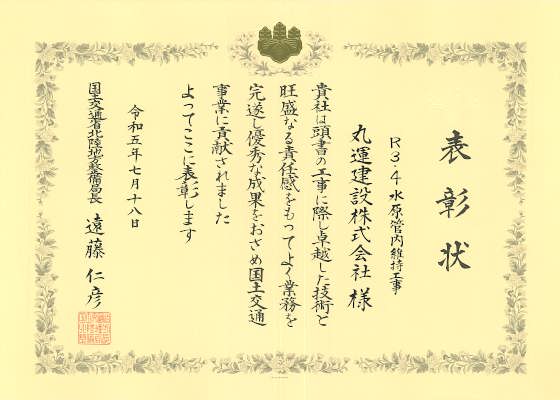 表彰状
R3・4水原管内維持工事
丸運建設株式会社 様
貴社は頭書の工事に際し卓越した技術と
旺盛なる責任感をもってよく業務を
完遂し優秀な成果をおさめ国土交通
事業に貢献されました
よってここに表彰します
令和五年七月十八日
国土交通省北陸地方整備局長 遠藤仁彦